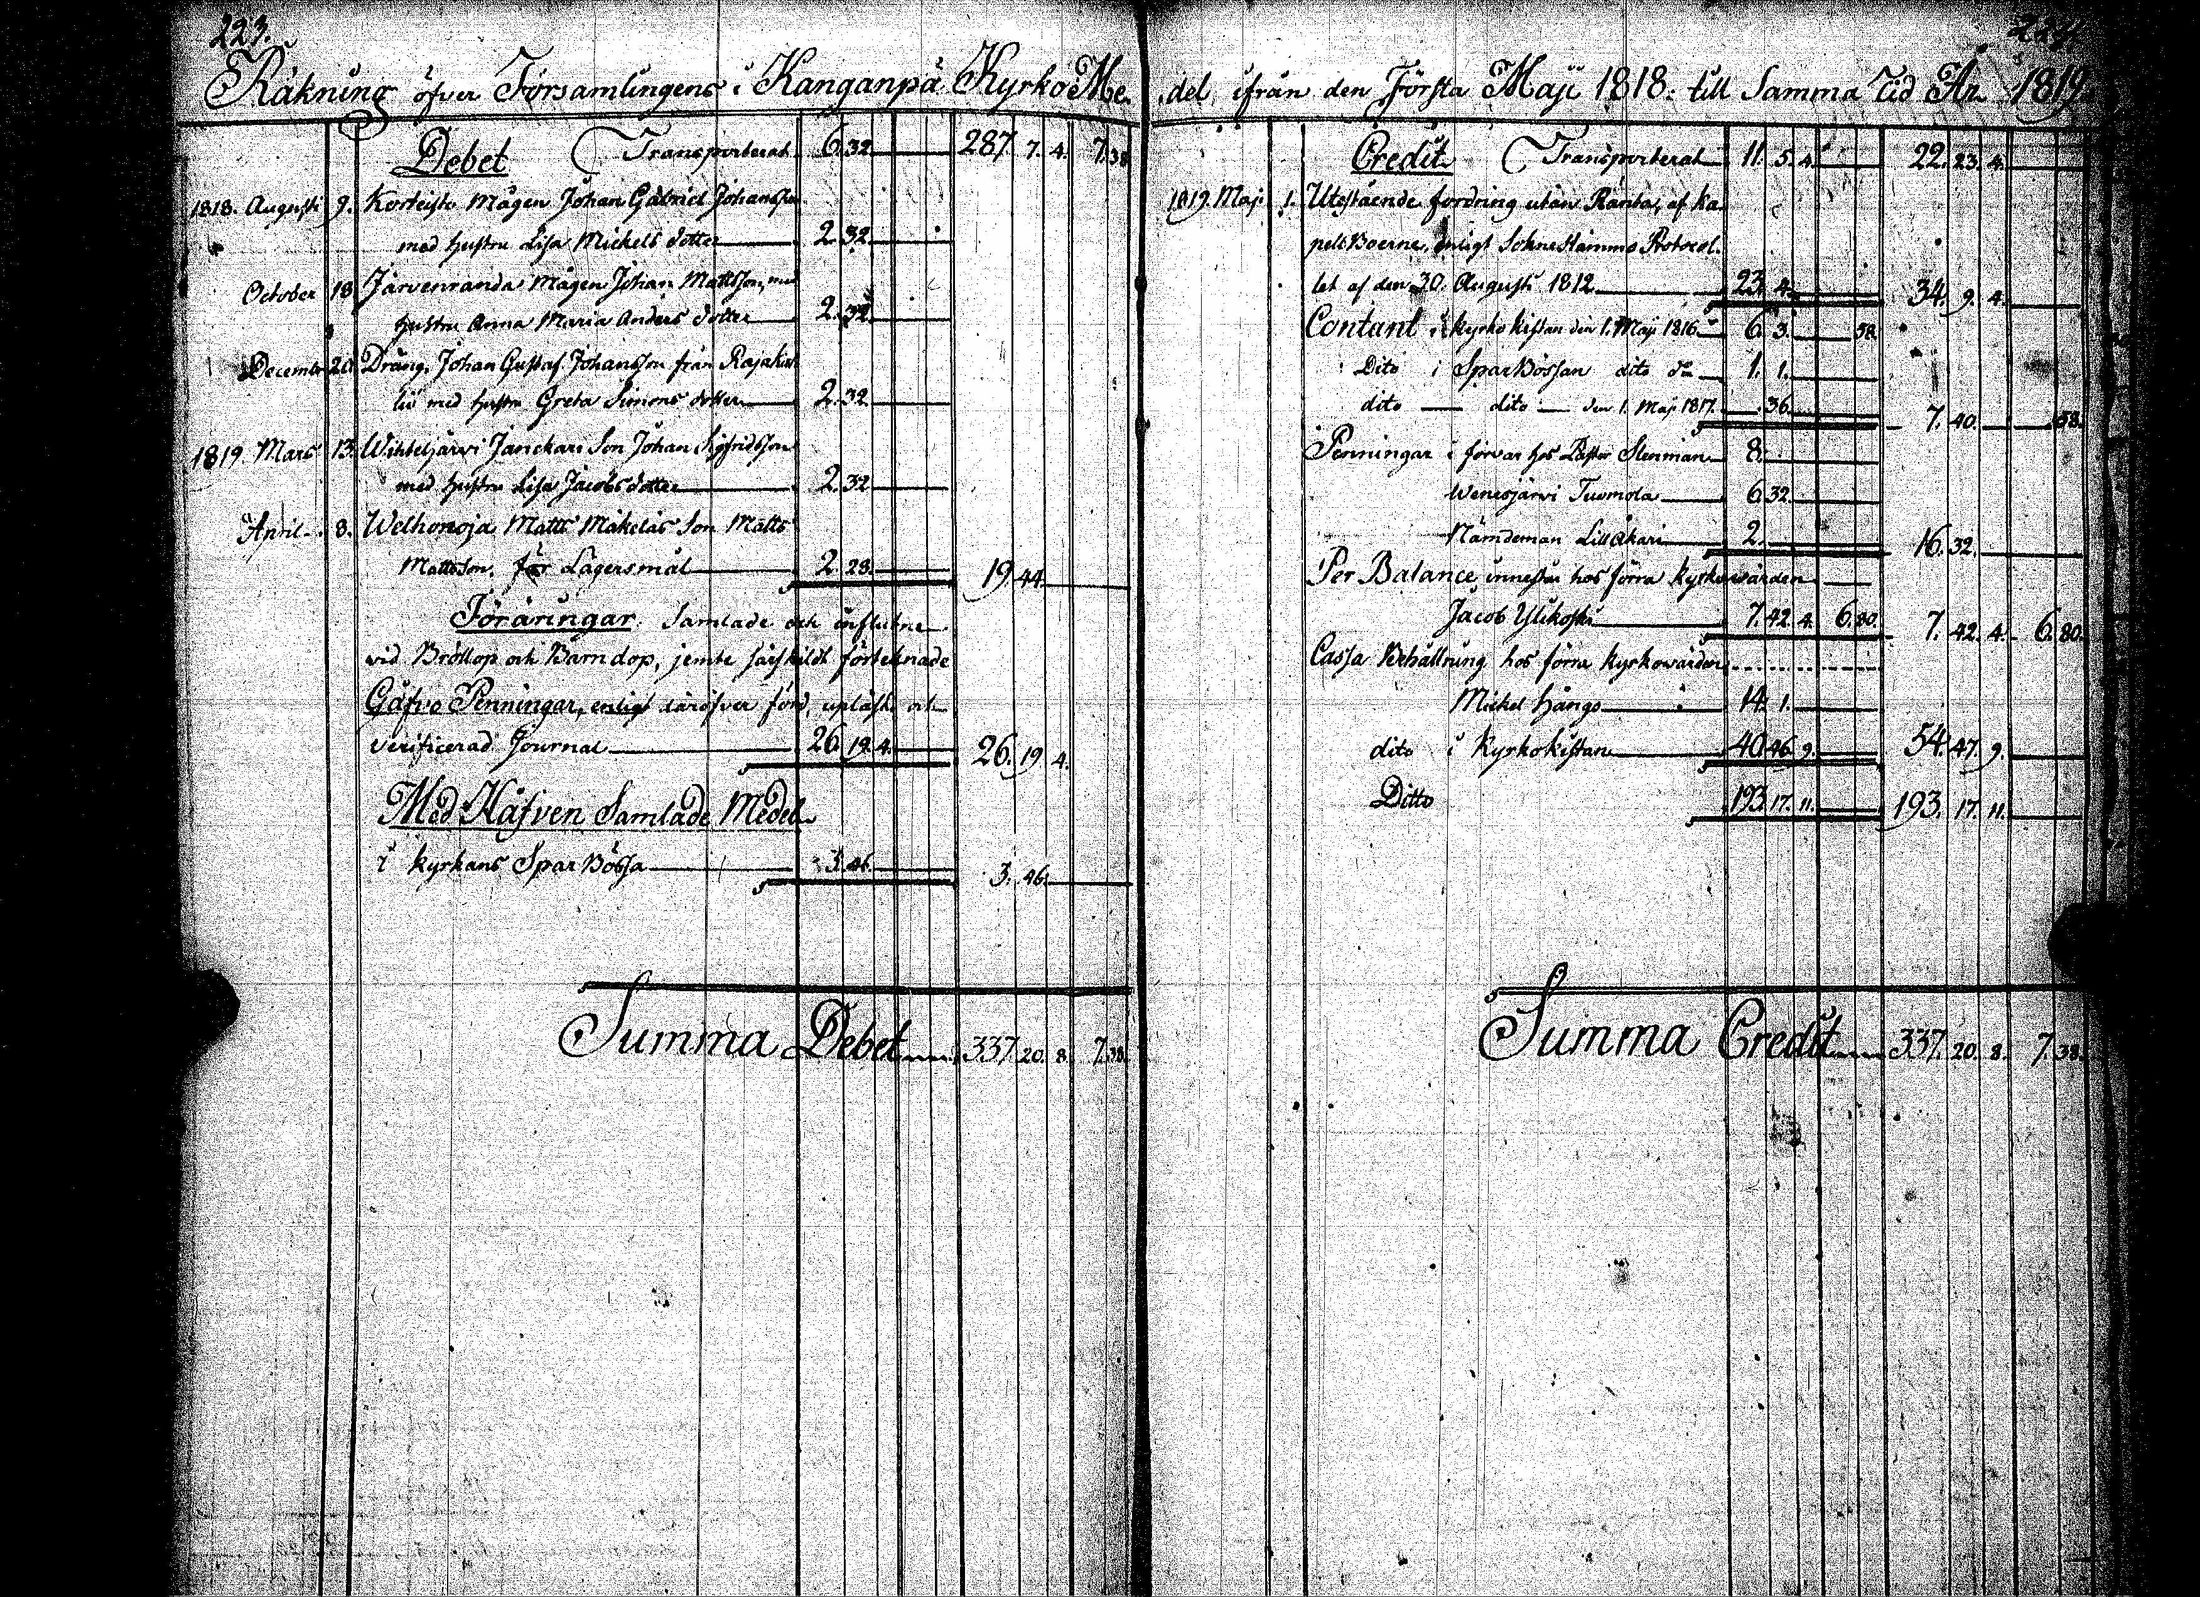 223.
Räkning öfver Församlingens i Kanganpä Kyrko Me-
Debet Transporterat 6. 32. 287. 7. 4. 7. 38
1818. Augusti 9. Korteisto Mågen Johan Gabriel Johansson
med hustru Lisa Mickels dotter 2. 32.
October 18. Järvenranda Mågen Johan Mattsson, med
hustru Anna Maria Anders dotter 2. 32.
December 20. Dräng. Johan Gustaf Johansson från
med hustru Greta Simons dotter 2. 32.
1819. Mars 13. Wihteljärvi Janckari Son Johan Sigfridsson
med hustru Lisa Jacobs dotter 2. 32
April 8. Welhonoja Matts Mäkeläs Son Matts
Mattsson, för Lägersmål 2. 28. 19. 44.
Föräringar. Samlade och influtne
vid Bröllop och Barndop, jemte särskildt förteknade
Gåfvo Penningar, enligt däröfver förd, upläst och
verificerad Journal 26. 19. 4. 26. 19. 4.
Med Håfven Samlade Medel
i kyrkans Spar Bössa 3. 46. 3. 46.
Summa Debet 337. 20. 8. 7. 38.
224.
del, ifrån den Första Maji 1818. till Samma Tid År 1819.
Credit Transporterat 11. 5. 4. 22. 23. 4.
1819. Maji 1. Utestående fordring utan Ränta, af Ka-
pell Boerne, enligt Sokne Stämmo Protocol-
let af den 30. Augusti 1812. 23. 4. 34. 9. 4.
Contant i Kyrko kistan den 1. Maji 1816 6. 3. 58.
Dito i Spar Bössan dito dn 1. 1.
dito dito den 1. Maji 1817. 36. 7. 40. 58.
Penningar i förvar hos Pastor Stenman 8.
Wenesjärvi Tuomola 6. 32.
Nämdeman Lill Åkari 2. 16. 32.
Per Balance innestår hos förra kyrkowärden
Jacob Ylikoski 7. 42. 4. 6. 80. 7. 42. 4. 6. 80.
Cassa Behållning hos förra kyrkowärden
Mickel Hångo 14. 1.
dito i Kyrkokistan 40. 46. 9. 54. 47. 9.
Ditto 193. 17. 11. 193. 17. 11.
Summa Credit 337. 20. 8. 7. 38.